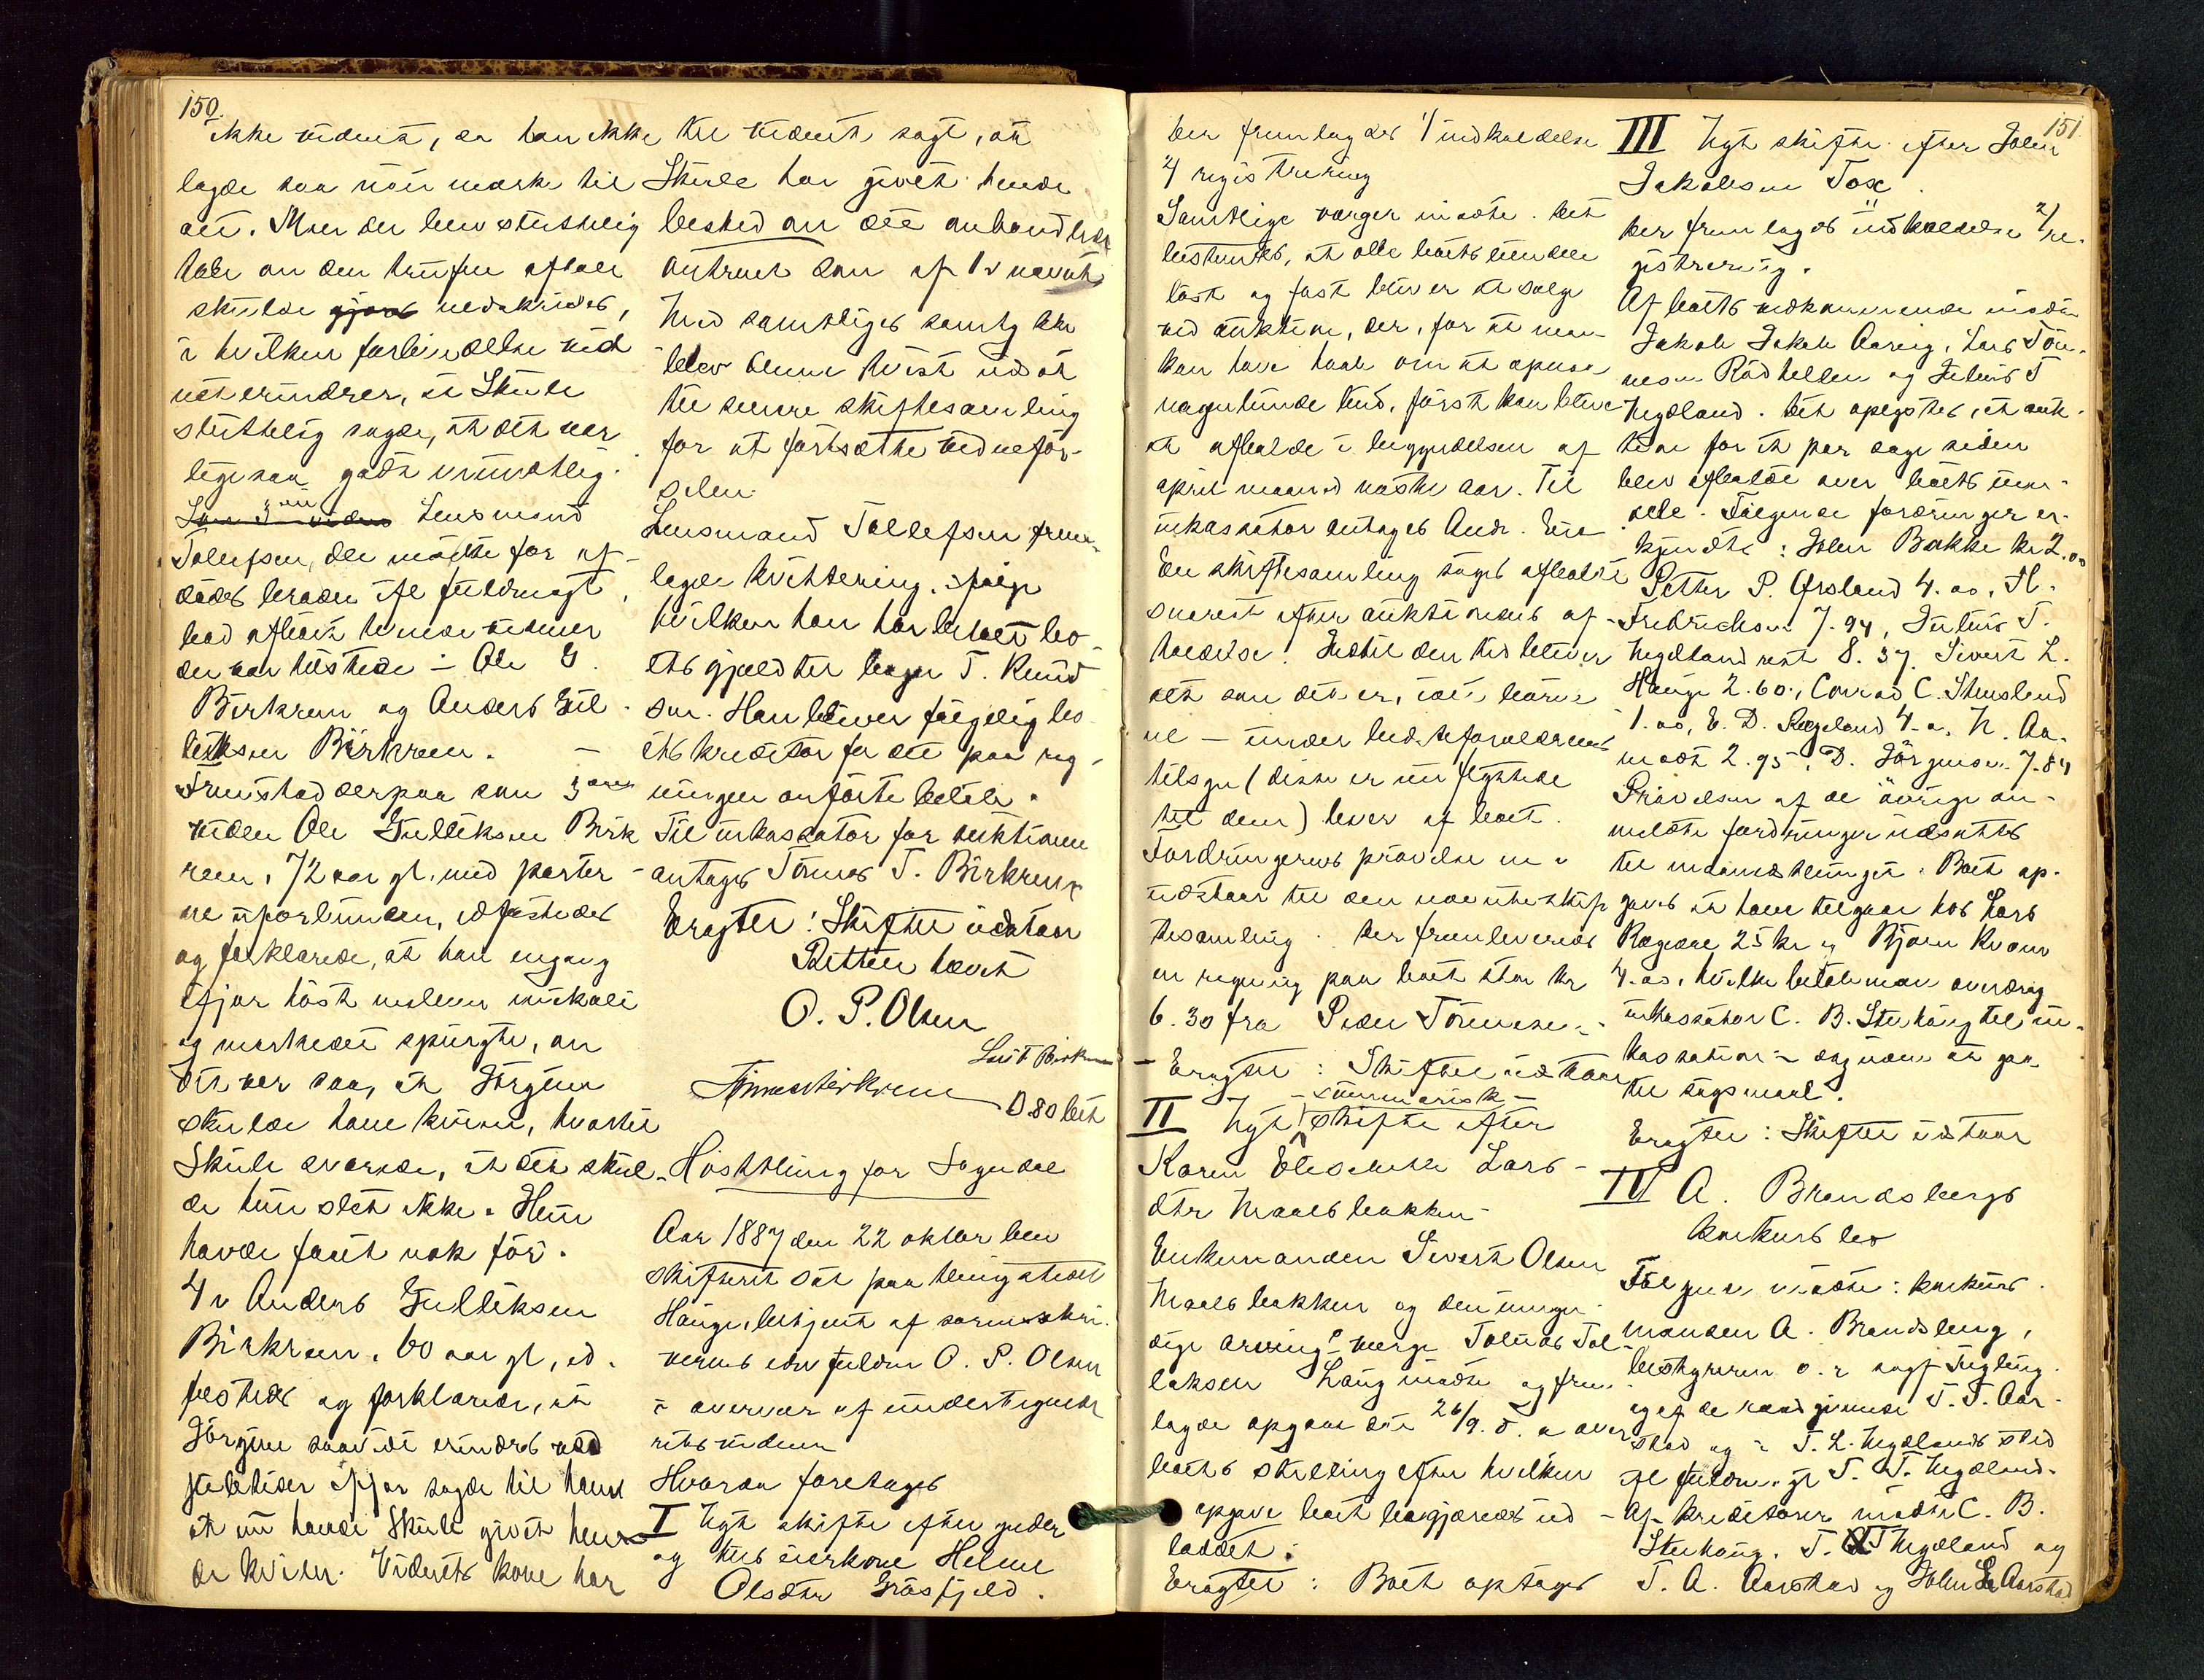 150.
ikke vidnet, da han ikke
lagde saa nöie mærke til
det. Men der blev sluttelig
tale om den trufne aftale
skulde gjøres nedskrives,
i hvilken forbindelse vid
net erindrer, at Skule
sluttelig sagde, at det var
ligesaa godt mundtlig.
Lensmand
Tollefsen, der mødte for af
dødes brødre ifl fuldmagt,
bad afhørt vidner
der var tilstede: Ole G.
Birkrem og Anders Gul
liksen Birkrem. —
Fremstod derpaa som 3die
vidne Ole Gulliksen Birk
rem, 72 aar gl. med parter
ne uforbunden, edfæstedes
og forklarede, at han engang
ifjor höst mellem mikkeli
og markedet spurgte, om
det var saa, at Jörgine
skulde have kvien, hvortil
Skule svarede, at det skul
de hun slet ikke. Hun
havde faaet nok før.
4v Anders Gulliksen
Birkrem, 60 aar gl, ed.
fæstedes og forklarede, at
Jörgine saavidt erindres ved
juletider ifjor sagde til ham
at nu havde Skule givet hen
de kvien. Vidnets kone har
til vidnet sagt, at
Skule har givet hende
besked om det omhandlede
omtrent som af 1v nævnt.
Med samtliges samtykke
blev denne tvist udsat
til senere skiftesamling
for at fortsætte vidneför-
selen.
Lensmand Tollefsen frem-
lagde kvittering, ifølge
hvilken han har betalt bo
ets gjæld til T. Knud
sen. Han bliver følgelig bo
ets kreditor for det paa reg
ningen anförte beløb.
Til inkassator for auktionen
antages Tönnes T. Birkrem
Eragtet: Skiftet udstaar
Retten hævet
O. P. Olsen
Lars T Birkrem
Tönnes Birkrem
D 80 bet
Höstthing for Sogndal
Aar 1887 den 22 oktober blev
skifteret sat paa thingstedet
Hauge, betjent af sorenskri
verens edsv fuldm O. P. Olsen
i overvær af undertegnede
rets vidner
Hvorda foretages
I Nyt skifte efter
og hus eierkone Helene
Olsdtr Gräsfjeld.
151
Der fremlagdes 1/ indkaldelse
2/ registrering
Samtlige varger mødte. Det
bestemtes, at alle boets eiendele
löst og fast bliver at sælge
ved auktion, der, for at man
kan have haab om at opnaa
nogenlunde bud, först kan blive
at afholde i begyndelsen af
april maaned næste aar. Til
inkassator antages Andr. Eie
En skiftesamling bliver afholdt
snarest efter auktionens af-
holdelse. Indtil den tid bliver
det som det er, idet börne
ne — under bedsteforældrenes
tilsyn (disse er nu flyttede
til dem) lever af boet.
Fordringernes prövelse
udstaar til den nævnte skif
tesamling. Der fremleveredes
en regning paa boet stor kr
6.30 fra Peder Tönnesen.
— Eragtet: Skiftet udstaar
II Nyt summarisk skifte efter
Karen Elisabeth Lars-
dtr Maalsbakken
Enkemanden Sivert Olsen
Maalsbakken og den umyn
dige arvings verge Tollak Tol
laksen Haug mødte og frem
lagde opgave dat 26/9. d. a over
boets stilling efter hvilken
opgave boet begjæredes ud
lagdet.
Eragtet: Boet optages
III Nyt skifte efter John
Jakobsen Tox.
Der fremlagdes 1/ indkaldelse 2/ re.
gistrering.
Af boets vedkommende mødte
Jakob Jakob Aarrig, Lars Tön
nesen Rödhellen og Julius T
Nygland. Det oplystes, at auk-
tion for et par dage siden
blev afholdt over boets eien-
dele. Fölgende fordringer er-
kjendtes: John Bakke kr 2.00
Petter P. Ørsland 4.00, H.
Fredriksen 7.94, Julius T.
Nygland rest 8.37. Sivert L.
Hauge 2.60, Conrad C. Stensland
1.00, E. D. Regeland 4.00, N. Aa-
modt 2.95, D. Jörgensen 7.84
Prövelsen af de övrige an-
meldte fordringer udsattes
til Boet op.
gaves at have tilgode hos Lars
Rægdal 25 kr og Bjørn Kvam
4.00, hvilke beløb man overdrog
inkassator C. B. Stenhaug til in-
kassation og uden at gaa
til søgsmaal.
Eragtet: Skiftet udstaar
IV A. Brandsbergs
konkursbo
Fölgende mødte: konkurs
manden A. Brandsberg,
bestyreren o. r sagf Tryling
og af de raadgivende T. T. Aar-
stad og i T. L. Nyglands sted
ifl fuldmagt T. T. Nygland.
Af kreditorer mødte C. B.
Stenhaug, T. T Nygland og
T. A. Aarstad og John L Aarstad